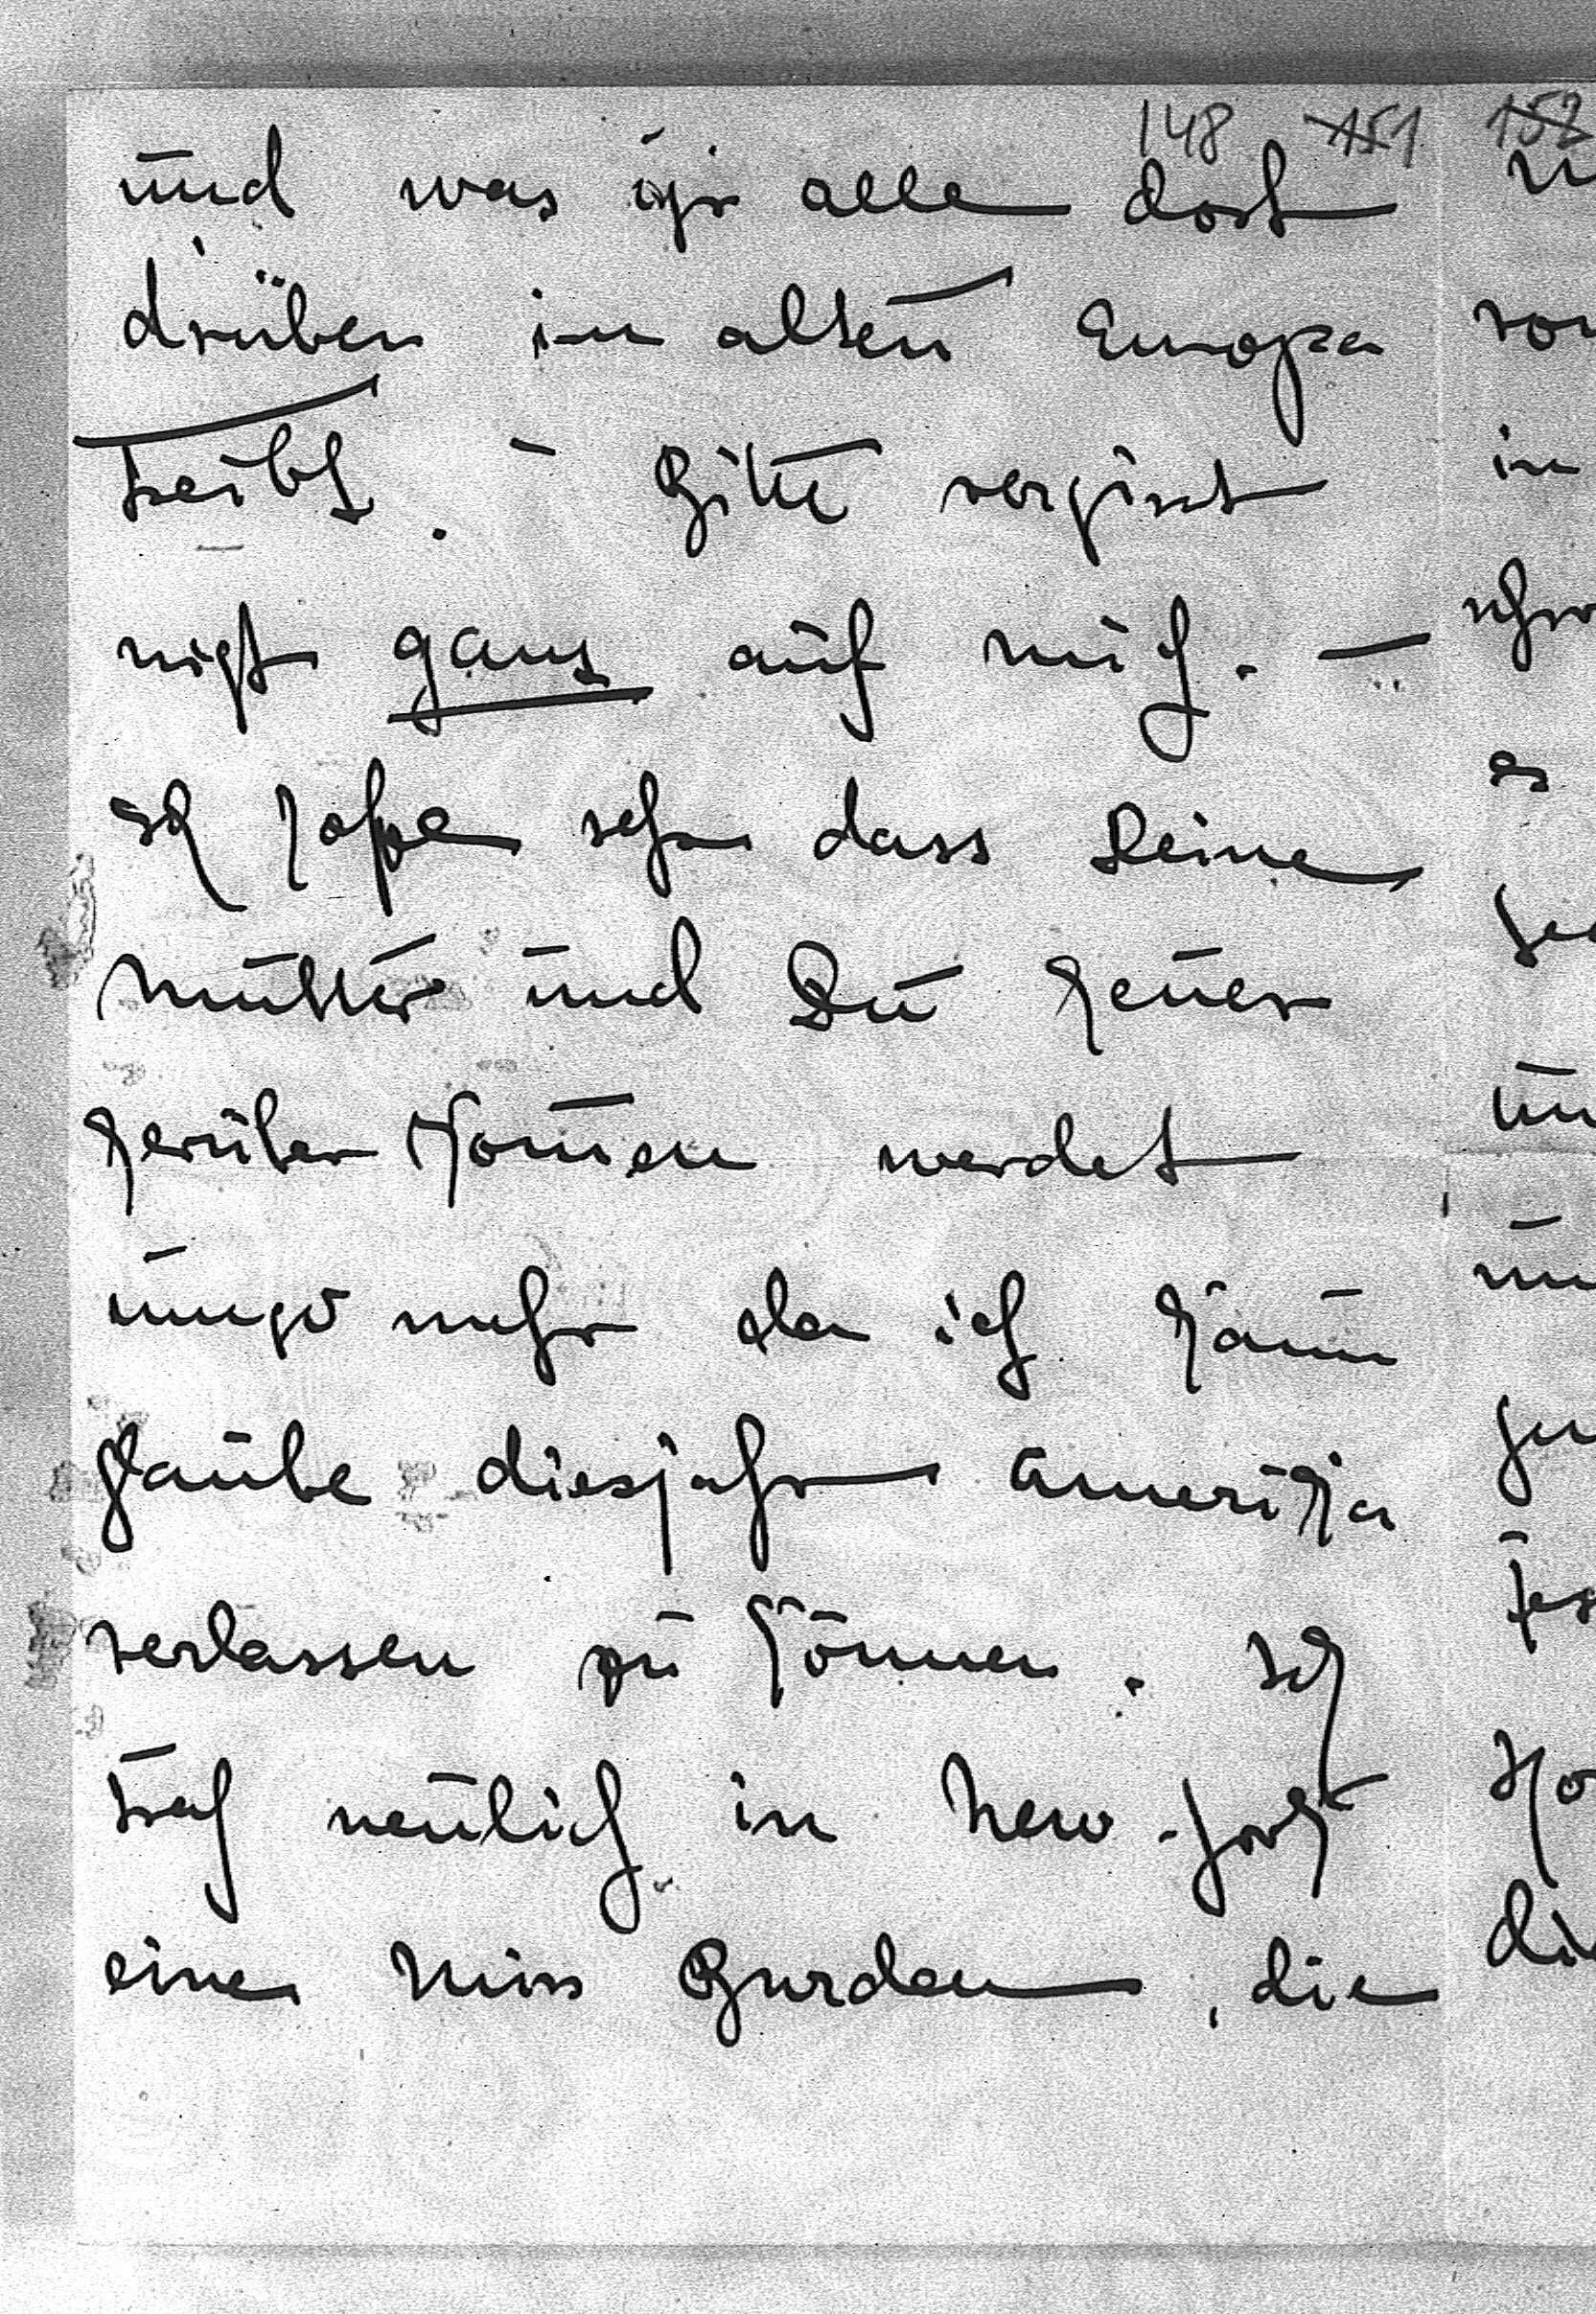 148 151 152
und was ihr alle dort
drüben im alten Europa
treibt. – Bitte vergisst
nicht ganz auf mich. —
Ich hoffe sehr dass Deine
Mutter und Du heuer
herüber kommen werdet
umso mehr da ich kaum
glaube diesjahr Amerika
verlassen zu können. Ich
traf neulich in New-York
eine Miss Burden, die
in
es